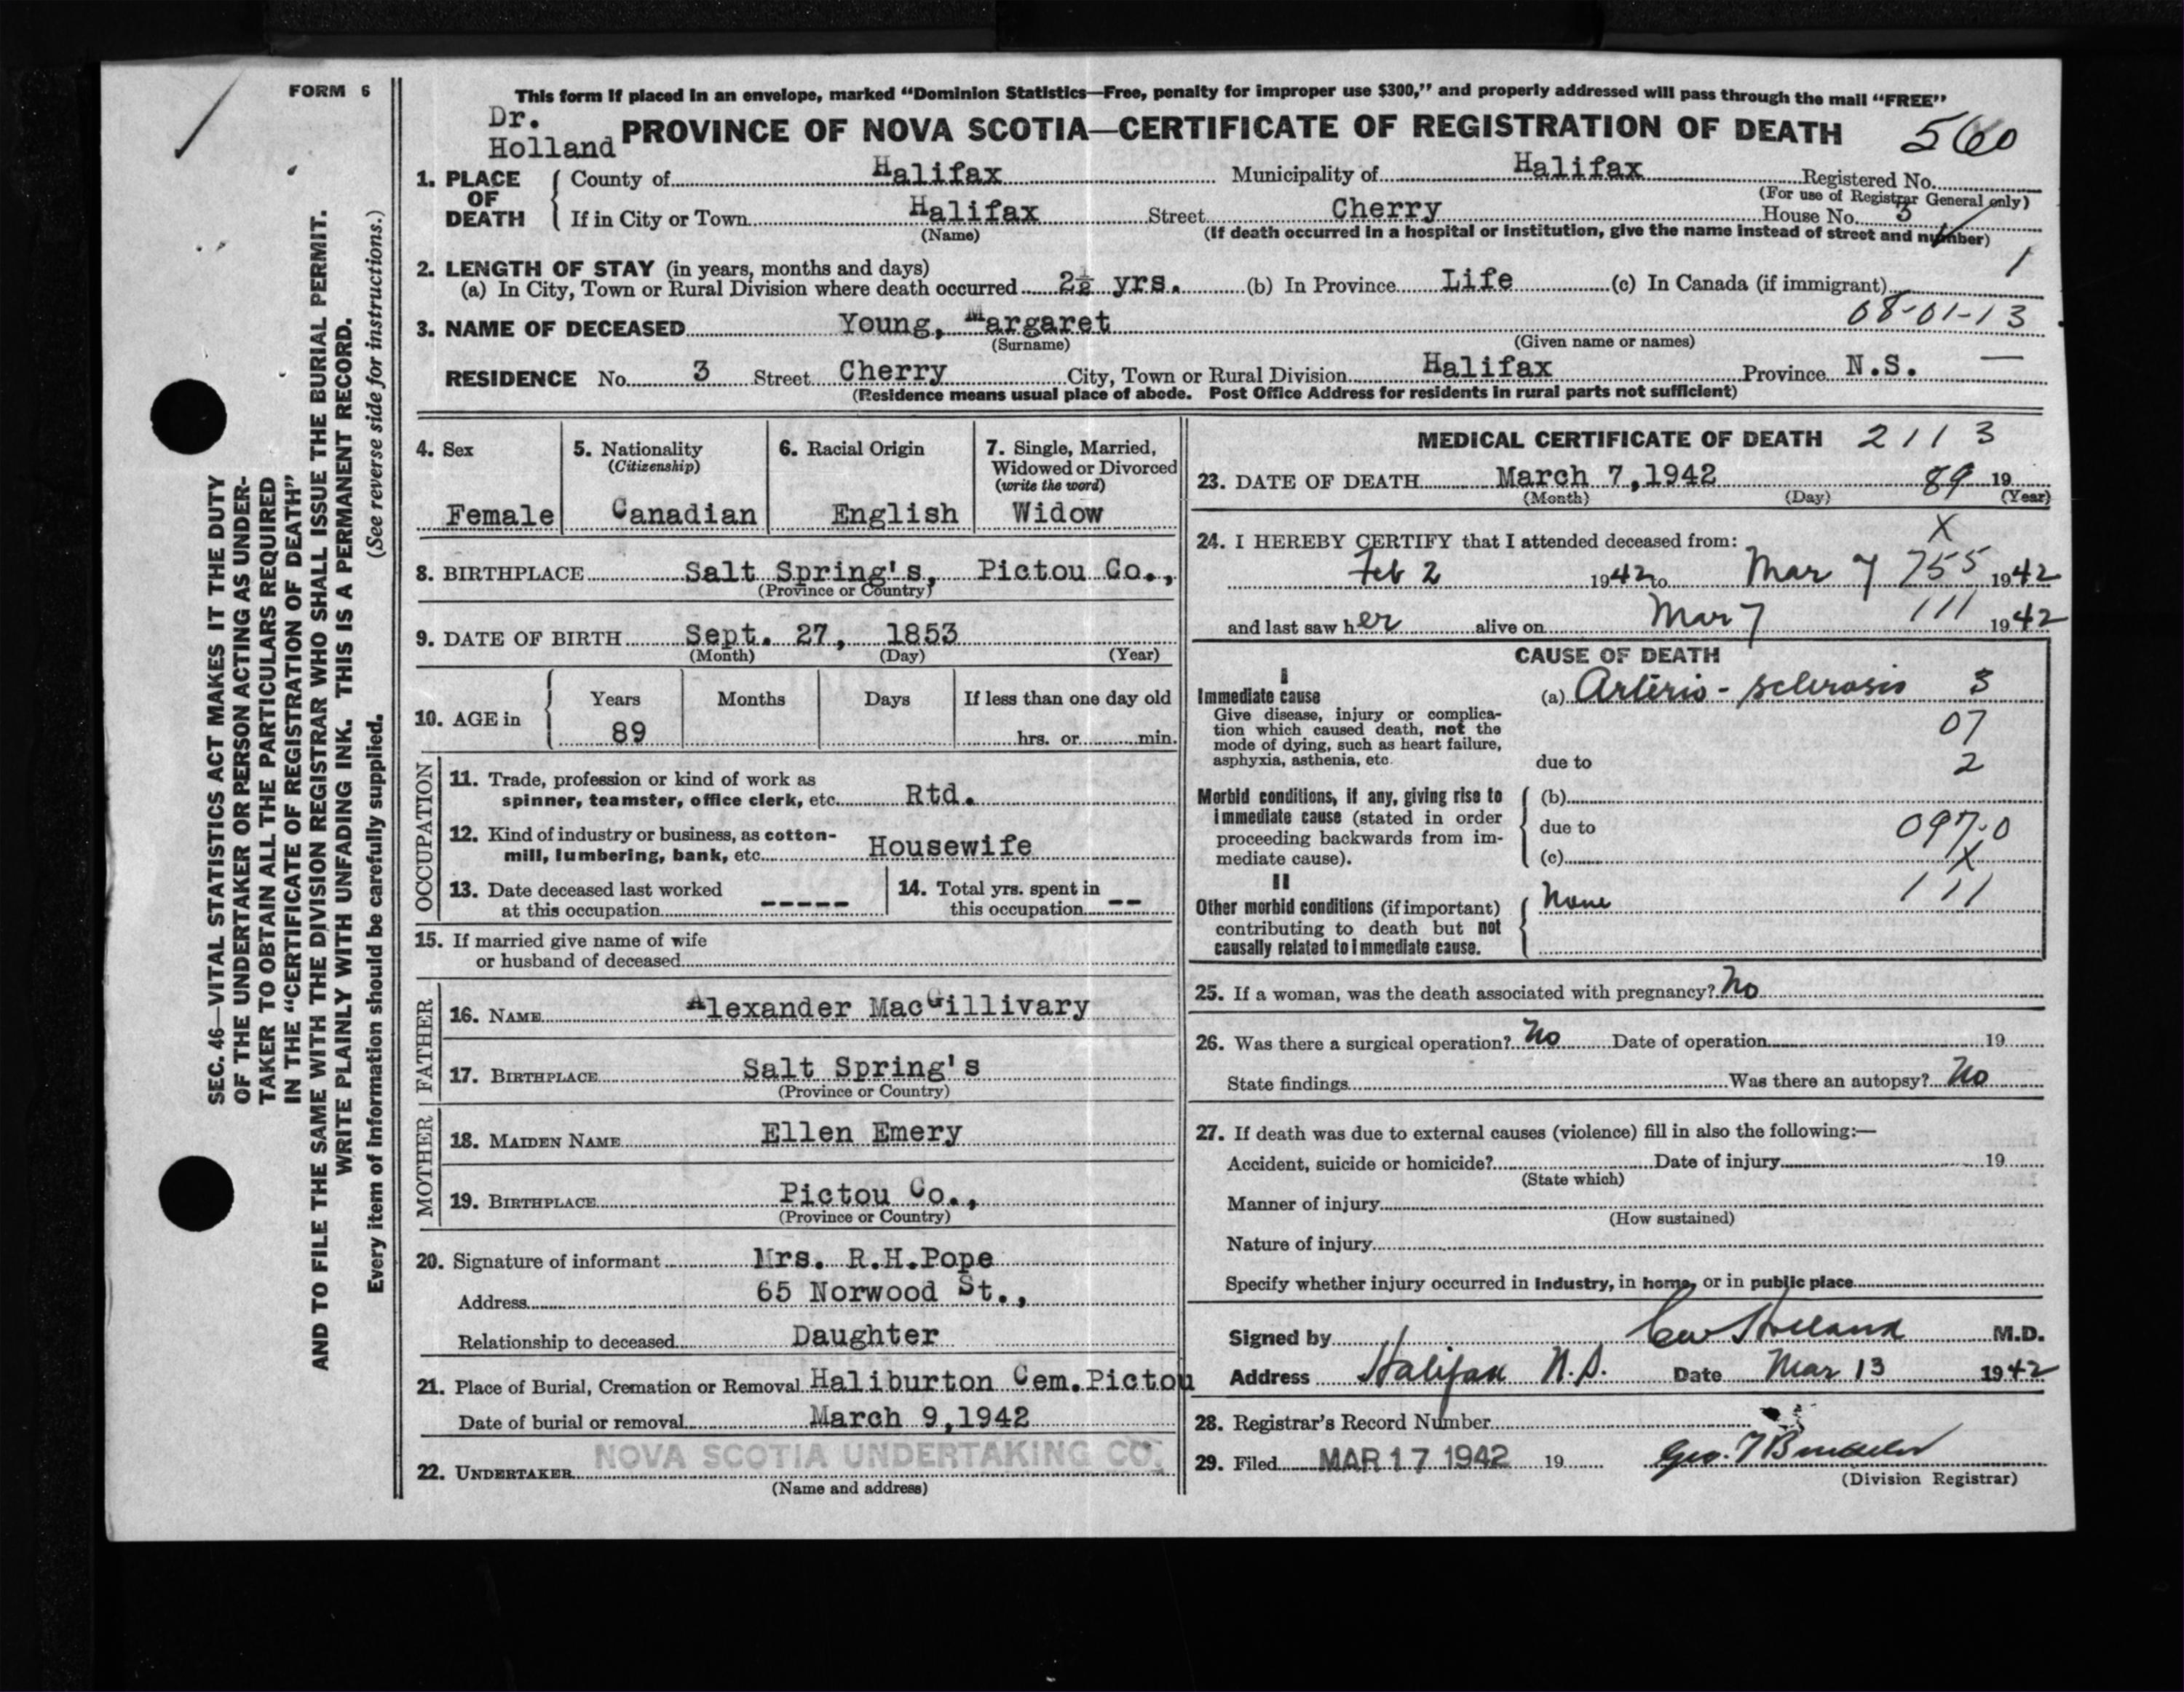 FORM 6
This form if placed in an envelope, marked "Dominion Statistics—Free, penalty for improper use $300," and properly addressed will pass through the mail "FREE"
Dr.
Holland
PROVINCE OF NOVA SCOTIA—CERTIFICATE OF REGISTRATION OF DEATH 560
1. PLACE OF DEATH
County of Halifax Municipality of Halifax Registered No.
(For use of Registrar General only)
If in City or Town Halifax Street Cherry House No. 3
(Name) (If death occurred in a hospital or institution, give the name instead of street and number)
1
2. LENGTH OF STAY (in years, months and days)
(a) In City, Town or Rural Division where death occurred 2½ yrs. (b) In Province Life (c) In Canada (if immigrant)
3. NAME OF DECEASED Young, Margaret 08-01-13
(Surname) (Given name or names)
RESIDENCE No. 3 Street Cherry City, Town or Rural Division Halifax Province N.S. —
(Residence means usual place of abode. Post Office Address for residents in rural parts not sufficient)
SEC. 46—VITAL STATISTICS ACT MAKES IT THE DUTY
OF THE UNDERTAKER OR PERSON ACTING AS UNDER-
TAKER TO OBTAIN ALL THE PARTICULARS REQUIRED
IN THE "CERTIFICATE OF REGISTRATION OF DEATH"
AND TO FILE THE SAME WITH THE DIVISION REGISTRAR WHO SHALL ISSUE THE BURIAL PERMIT.
WRITE PLAINLY WITH UNFADING INK. THIS IS A PERMANENT RECORD.
Every item of information should be carefully supplied. (See reverse side for instructions.)
4. Sex
Female
5. Nationality
(Citizenship)
Canadian
6. Racial Origin
English
7. Single, Married,
Widowed or Divorced
(write the word)
Widow
8. BIRTHPLACE Salt Spring's, Pictou Co.,
(Province or Country)
9. DATE OF BIRTH Sept. 27, 1853
(Month) (Day) (Year)
10. AGE in
Years Months Days If less than one day old
89 hrs. or min.
OCCUPATION
11. Trade, profession or kind of work as
spinner, teamster, office clerk, etc. Rtd.
12. Kind of industry or business, as cotton-
mill, lumbering, bank, etc. Housewife
13. Date deceased last worked
at this occupation -----
14. Total yrs. spent in
this occupation --
15. If married give name of wife
or husband of deceased
FATHER
16. NAME Alexander MacGillivary
17. BIRTHPLACE Salt Spring's
(Province or Country)
MOTHER
18. MAIDEN NAME Ellen Emery
19. BIRTHPLACE Pictou Co.,
(Province or Country)
20. Signature of informant Mrs. R.H.Pope
Address 65 Norwood St.,
Relationship to deceased Daughter
21. Place of Burial, Cremation or Removal Haliburton Cem.Pictou
Date of burial or removal March 9,1942
22. UNDERTAKER NOVA SCOTIA UNDERTAKING CO.
(Name and address)
MEDICAL CERTIFICATE OF DEATH 2113
23. DATE OF DEATH March 7,1942 89 19
(Month) (Day) (Year)
24. I HEREBY CERTIFY that I attended deceased from: X
Feb 2 1942 to Mar 7 755 1942
and last saw her alive on Mar 7 111 1942
CAUSE OF DEATH
I
Immediate cause (a) Arterio-sclerosis 3
Give disease, injury or complica-
tion which caused death, not the
mode of dying, such as heart failure,
asphyxia, asthenia, etc.
07
due to 2
Morbid conditions, if any, giving rise to
immediate cause (stated in order
proceeding backwards from im-
mediate cause).
(b)
due to 097.0
(c) X
II
Other morbid conditions (if important)
contributing to death but not
causally related to immediate cause.
None 111
25. If a woman, was the death associated with pregnancy? No
26. Was there a surgical operation? No Date of operation 19
State findings Was there an autopsy? No
27. If death was due to external causes (violence) fill in also the following:—
Accident, suicide or homicide? Date of injury 19
(State which)
Manner of injury
(How sustained)
Nature of injury
Specify whether injury occurred in industry, in home, or in public place
Signed by Holland M.D.
Address Halifax N.S. Date Mar 13 1942
28. Registrar's Record Number
29. Filed MAR 17 1942 19 Geo.
(Division Registrar)